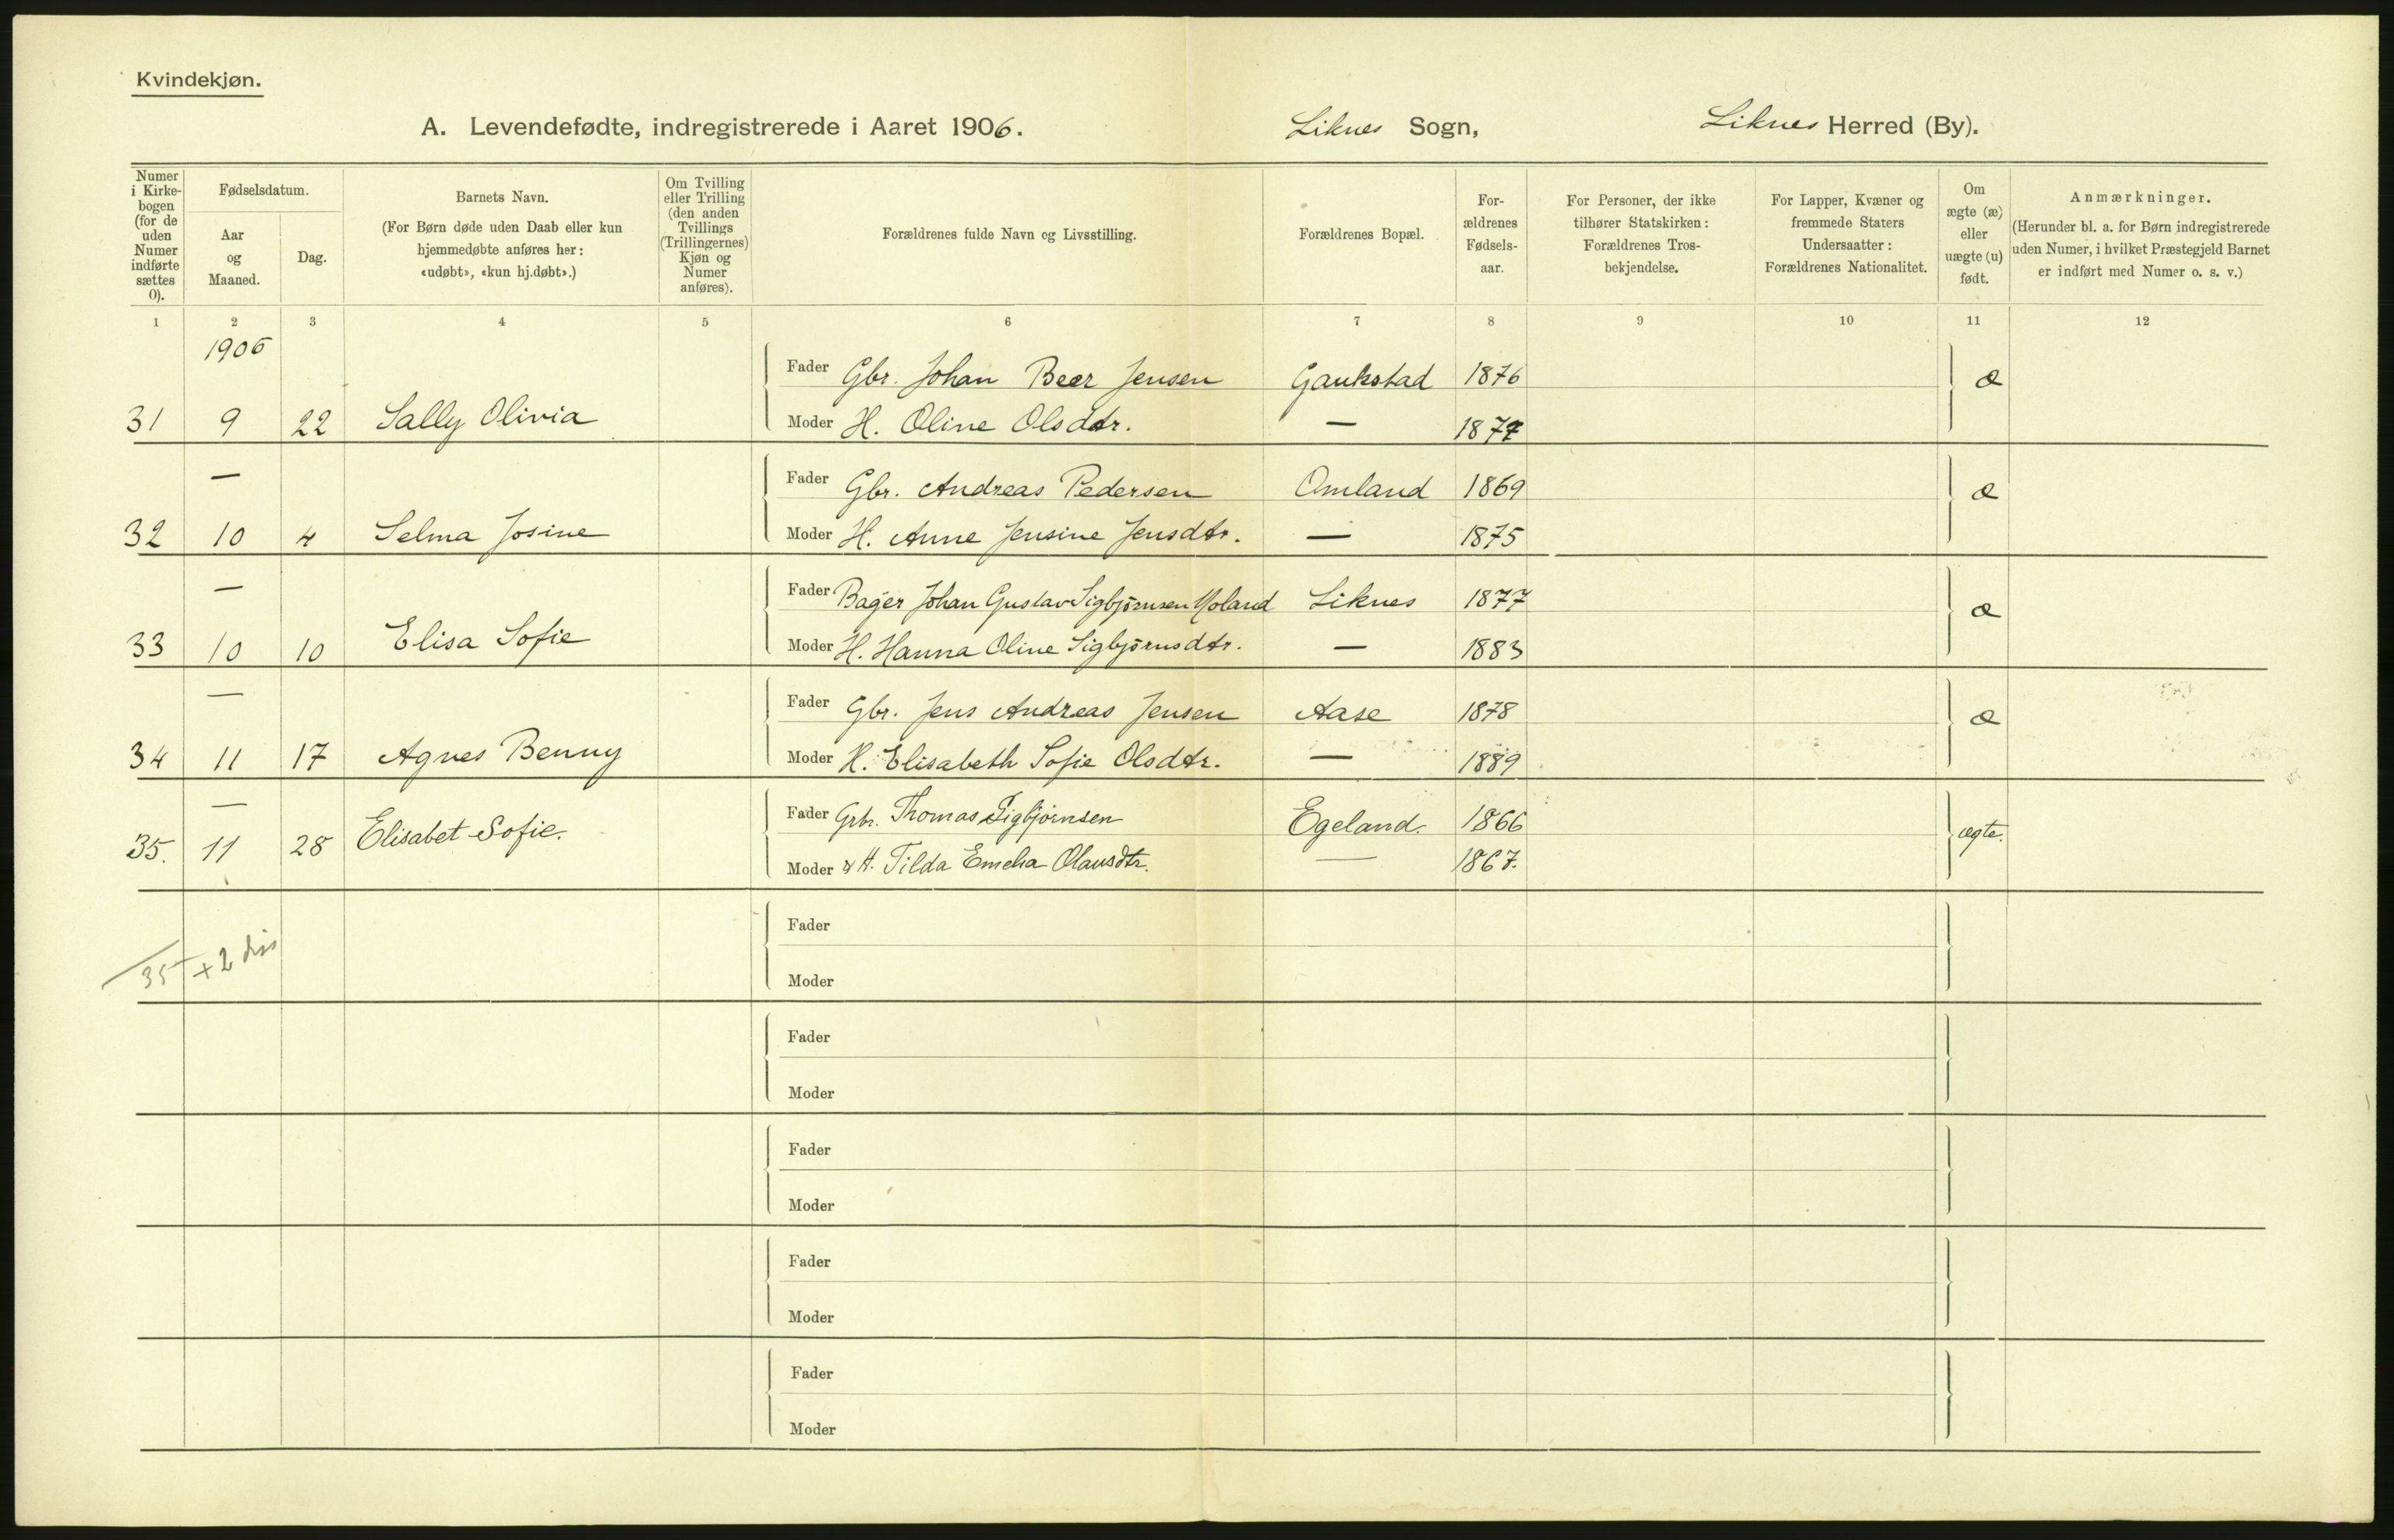 Kvindekjøn.
A. Levendefødte, indregistrerede i Aaret 1906. Liknes Sogn, Liknes Herred (By).
Numer i Kirkebogen (for de uden Numer indførte sættes 0).
Fødselsdatum.
Aar og Maaned.
Dag.
Barnets Navn.
(For Børn døde uden Daab eller kun hjemmedøbte anføres her: «udøbt», «kun hj.døbt».)
Om Tvilling eller Trilling (den anden Tvillings (Trillingernes) Kjøn og Numer anføres).
Forældrenes fulde Navn og Livsstilling.
Forældrenes Bopæl.
Forældrenes Fødselsaar.
For Personer, der ikke tilhører Statskirken: Forældrenes Trosbekjendelse.
For Lapper, Kvæner og fremmede Staters Undersaatter: Forældrenes Nationalitet.
Om ægte (æ) eller uægte (u) født.
Anmærkninger.
(Herunder bl. a. for Børn indregistrerede uden Numer, i hvilket Præstegjeld Barnet er indført med Numer o. s. v.)
1 2 3 4 5 6 7 8 9 10 11 12
1906
Fader Gbr. Johan Beer Jensen Gaukstad 1876 æ
31 9 22 Sally Olivia Moder H. Oline Olsdtr. — 1877
— Fader Gbr. Andreas Pedersen Omland 1869 æ
32 10 4 Selma Josine Moder H. Anne Jensine Jensdtr. — 1875
— Fader Bager Johan Gustav Sigbjørnsen Moland Liknes 1877 æ
33 10 10 Elisa Sofie Moder H. Hanna Oline Sigbjørnsdtr. — 1883
— Fader Gbr. Jens Andreas Jensen Aase 1878 æ
34 11 17 Agnes Benny Moder H. Elisabeth Sofie Olsdtr. — 1889
— Fader Grbr. Thomas Sigbjørnsen Egeland. 1866 ægte.
35. 11 28 Elisabet Sofie. Moder & H. Tilda Emelia Olausdtr. — 1867.
Fader
35 + 2 dis
Moder
Fader
Moder
Fader
Moder
Fader
Moder
Fader
Moder